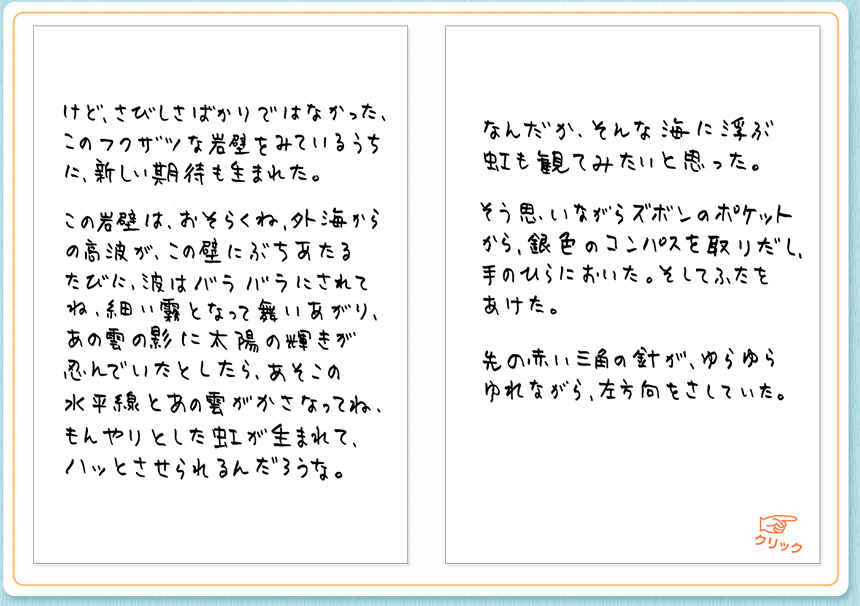 けど、さびしさばかりではなかった、
このフクザツな岩壁をみているうち
に、新しい期待も生まれた。
この岩壁は、おそらくね、外海から
の高波が、この壁にぶちあたる
たびに、波はバラバラにされて
ね、細い霧となって舞いあがり、
あの雲の影に太陽の輝きが
忍んでいたとしたら、あそこの
水平線とあの雲がかさなってね、
もんやりとした虹が生まれて、
ハッとさせられるんだろうな。
なんだか、そんな海に浮ぶ
虹も観てみたいと思った。
そう思いながらズボンのポケット
から、銀色のコンパスを取りだし、
手のひらにおいた。そしてふたを
あけた。
先の赤い三角の針が、ゆらゆら
ゆれながら、左方向をさしていた。
クリック